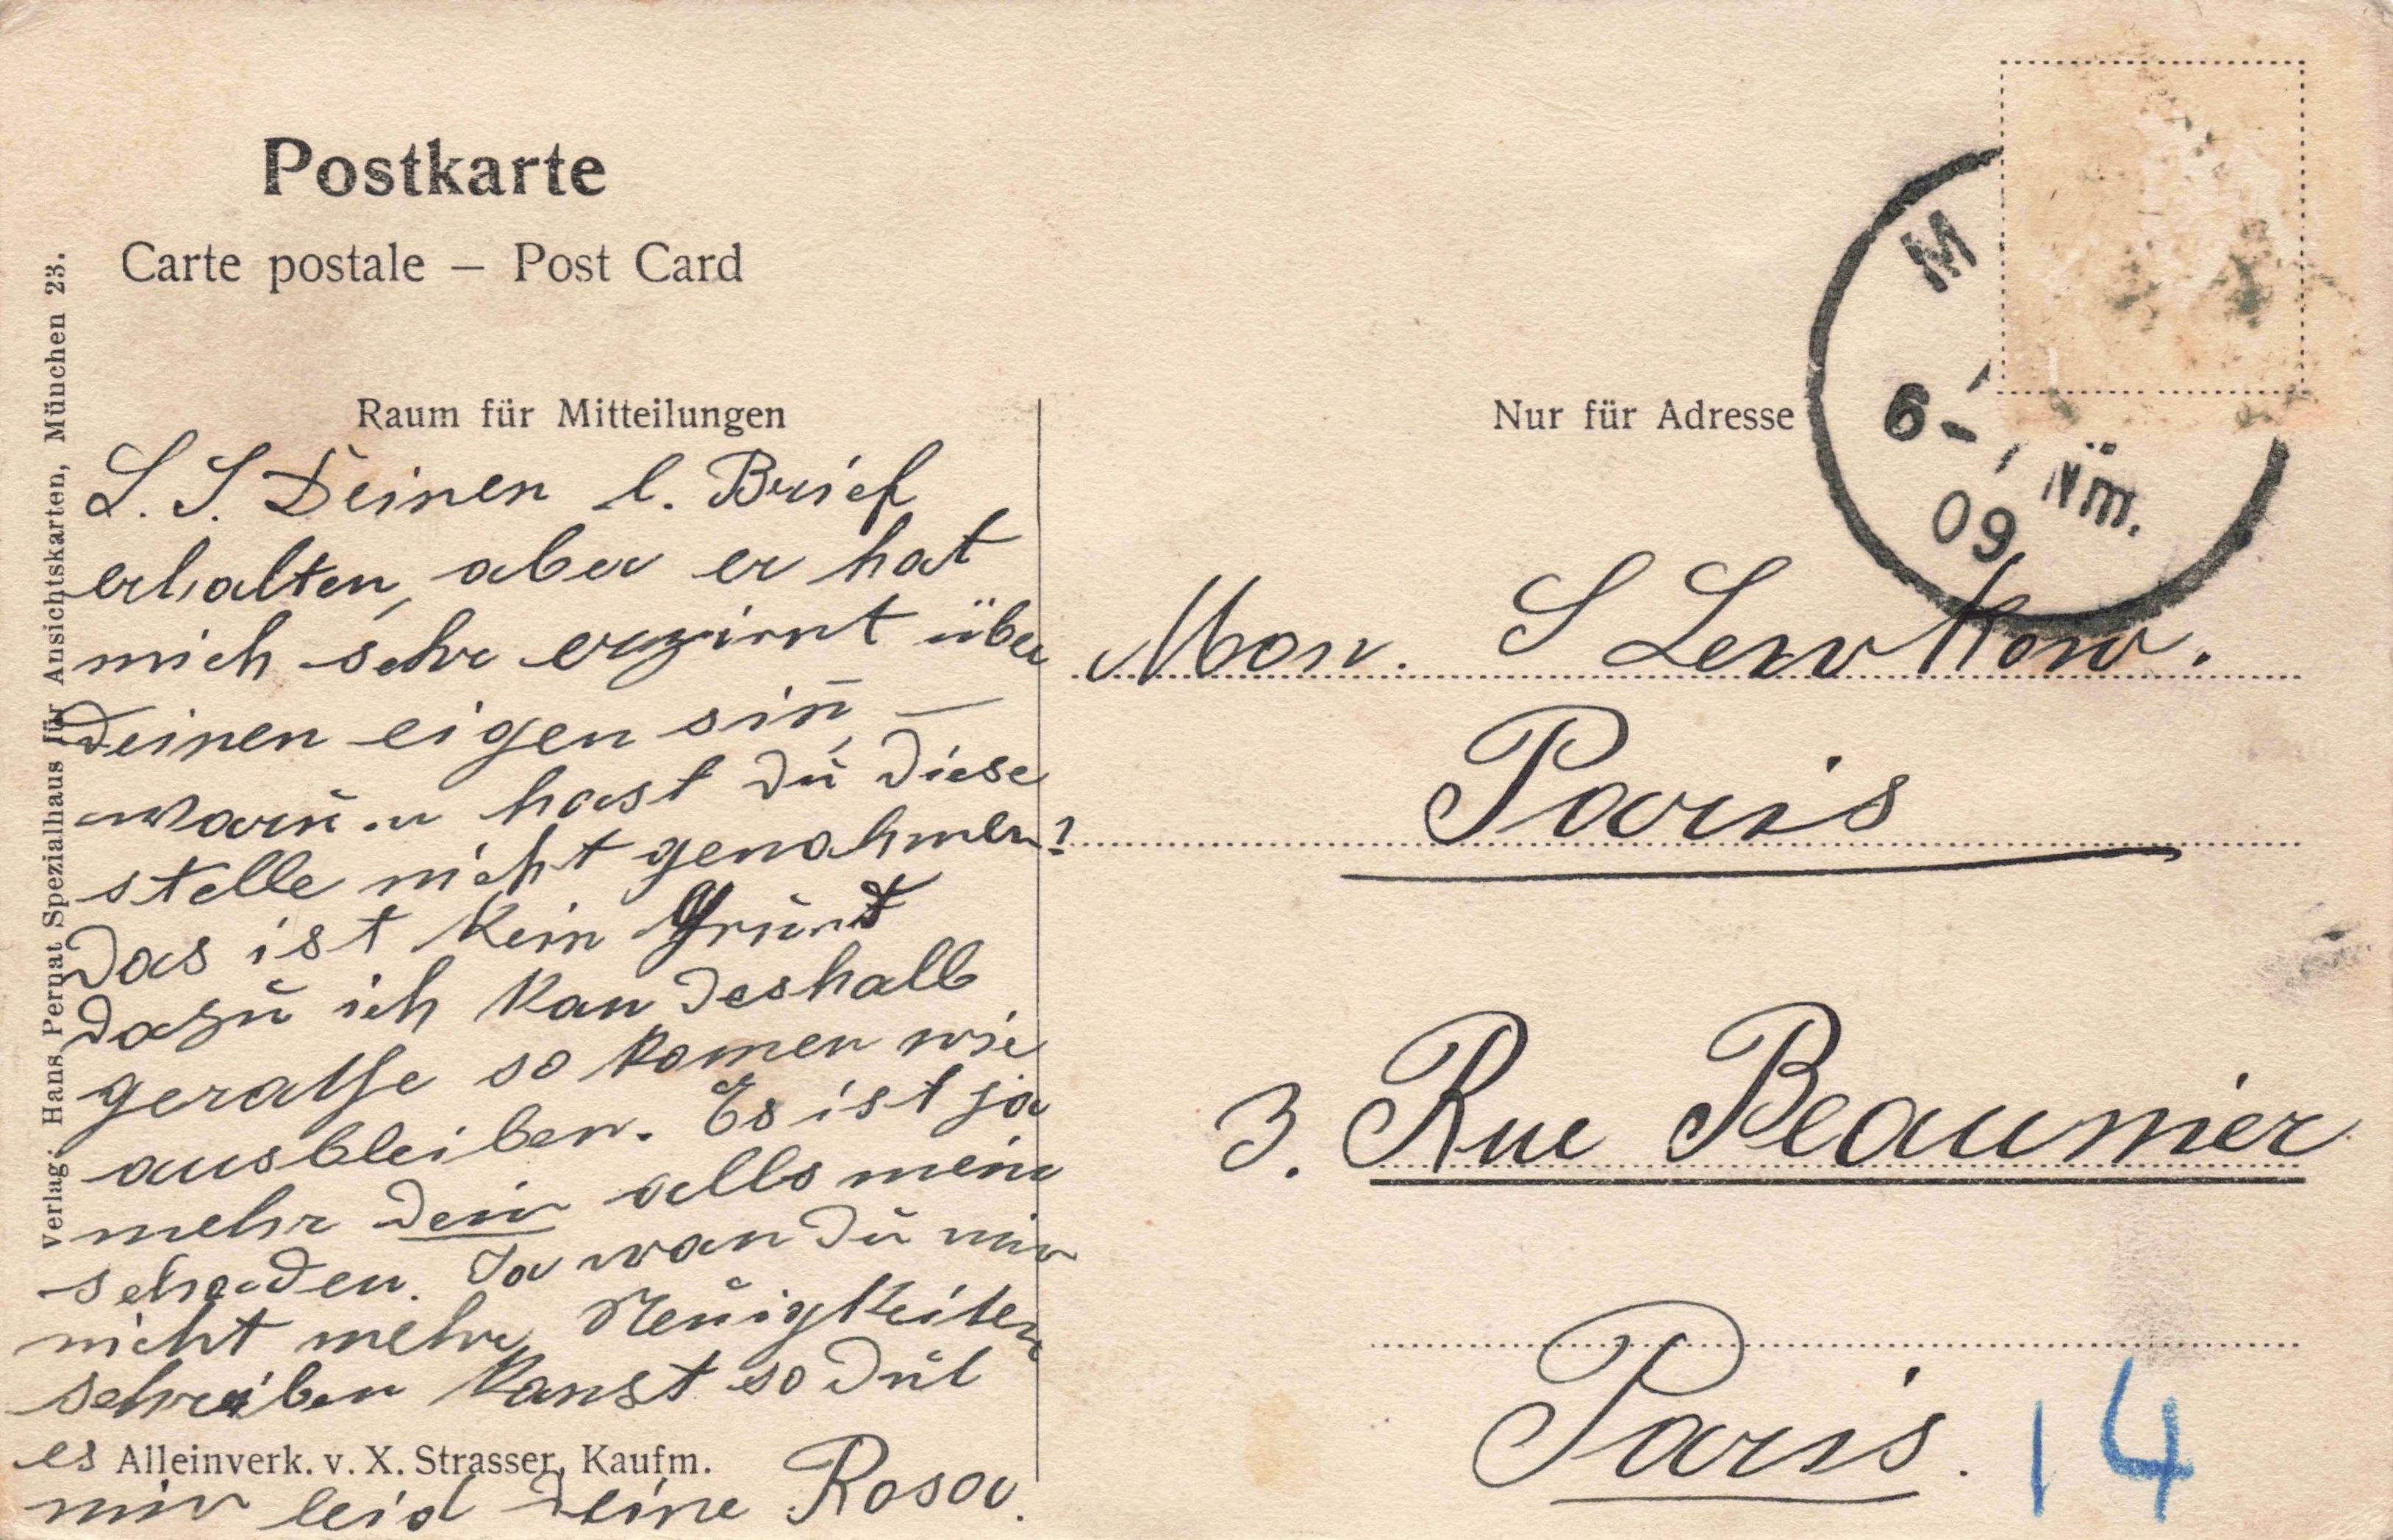 Postkarte
Carte postale – Post Card
Raum für Mitteilungen
Nur für Adresse
verlag: Hans Pernat Spezialhaus für Ansichtskarten, München 23.
M
6-
Nm.
09
L. S. Deinen l. Brief
erhalten, aber er hat
mich sehr erzirnt über
Deinen eigen sin̄, —
warum hast Dŭ Diese
stelle nicht genohmen?
Das ist Kein Grŭnt
Dazŭ ich Kan Deshalb
so komen wie
ausbleiben. Es ist ja
mehr Dein alls mein
schaden. Ja wan Dŭ mir
nicht mehr Neŭigkeiten
schreiben Kanst so Dŭt
es Alleinverk. v. X. Strasser, Kaufm.
mir leid Deine Rosa.
Mon. S Lewkow.
Paris
3. Rue Beaunier
Paris.
14